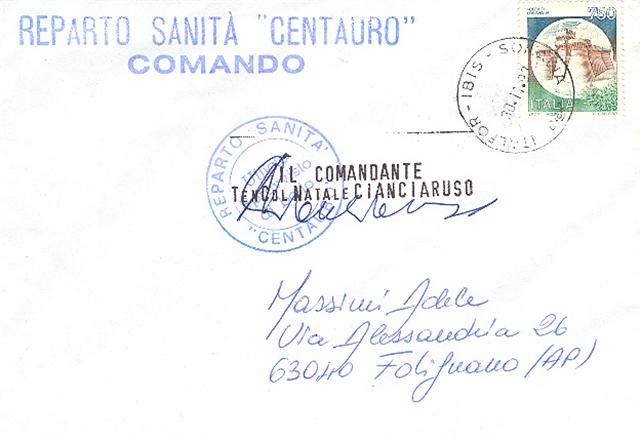 REPARTO SANITÀ "CENTAURO"
COMANDO
750
ITALIA
ITALFOR - IBIS - SOMALIA
REPARTO SANITA'
"CENTAURO"
IL COMANDANTE
TENCOL NATALE CIANCIARUSO
Massimi Adele
Via Alessandria 26
63040 Folignano (AP)